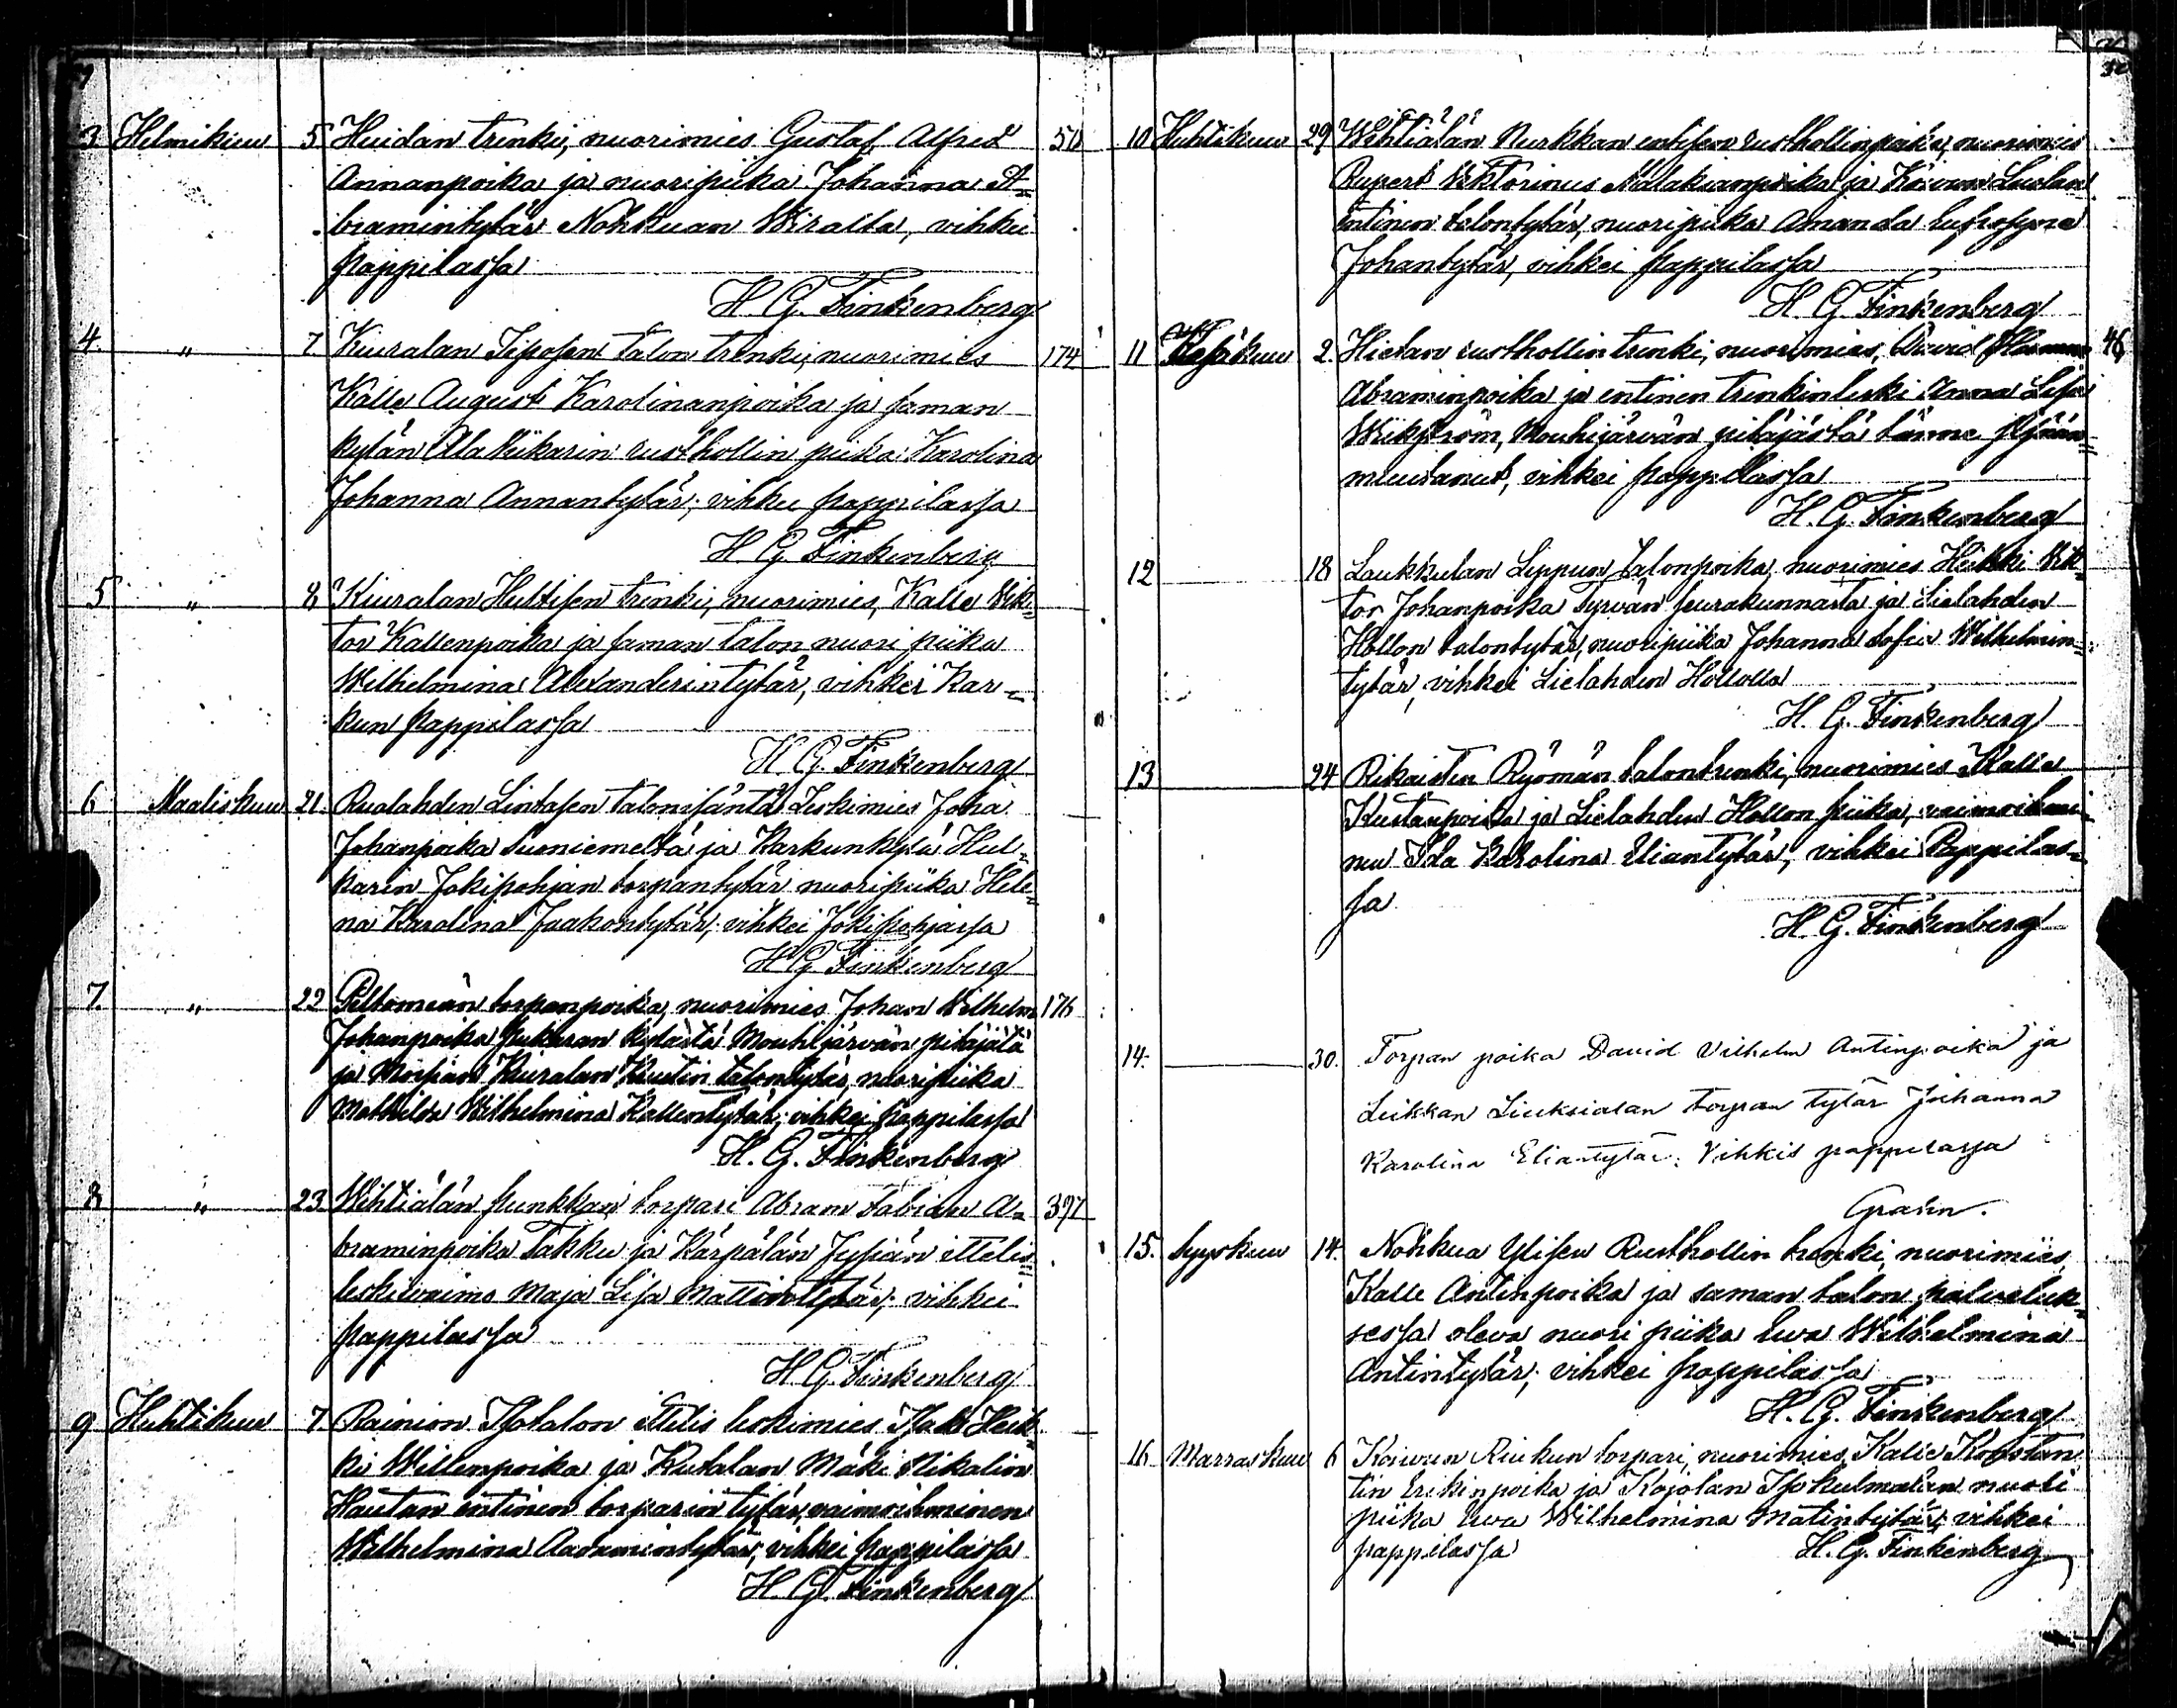 3 Helmikuu 5 Huidan trenki, nuorimies Gustaf Alfred
Annanpoika ja nuoripiika Johanna A-
bramintytär Nohkuan Wiralta, vihki
pappilassa
H. G. Finkenberg
4. " 7. Kiuralan Siposen talon trenki, nuorimies 174
Kalle August Karolinanpoika ja saman
kylän Ala rusthollin piika Karolina
Johanna Annantytär; vihki pappilassa
H. G. Finkenberg
5 " 8 Kiuralan Hultisen trenki, nuorimies, Kalle Vik-
tor Kallenpoika ja saman talon nuori piika
Wilhelmina Alexanderintytär, vihkei Kar-
kun pappilassa
H. G. Finkenberg
6 Maaliskuu 21. talonisäntä Leskimies Juha
Johanpoika Suoniemeltä ja Karkunkylä Hul-
karin Jokipohjan torpantytär nuoripiika Hele-
na Karolina Jaakontytär; vihkei Jokipohjassa
H G Finkenberg
7. " 22 torpanpoika, nuorimies Johan Wilhelm 176
Johanpoika kylästä Mouhijärvän pitäjätä
ja Kiuralan Kustin talontytär, nuoripiika
Mathilda Wilhelmina Kallentytär; vihkei pappilassa
H. G. Finkenberg
8 " 23 Wihtiälän Punkkan torpari Abram Fabian A- 397
braminpoika Takku ja Kärpälän ittelis
leskivaimo Maja Lisa Mattintytär; vihkei
pappilassa
H. G. Finkenberg
9 Huhtikuu 7. Rainion Isotalon ittelis leskimies Isak Heik-
ki Willenpoika ja Kutalan Mäki Mikalin
Hautan entinen torparin tytär, vaimoihminen
Wilhelmina Aadamintytär, vihkei pappilassa
H. G. Finkenberg
10 Huhtikuu 29 Wihtiälän Nurkkan entisen rusthollinpoika, nuorimies
Rupert Wiktorinus Malakianpoika ja Koivun Laulan
entinen talontytär, nuoripiika Amanda Eufrosyne
Johantytär, vihkei pappilassa
H. G. Finkenberg
11 Kesäkuu 2. Hiedan rusthollin trenki, nuorimies, David 46
Abraminpoika ja entinen trenkinleski Anna Lisa
Wikström, Mouhijärvän pitäjästä tänne
muutanut, vihkei pappilassa
H. G. Finkenberg
12 18 Laukkulan Leppun talonpoika, nuorimies Heikki Vik-
tor Johanpoika Tyrvän seurakunnasta ja Lielahden
Hollon talontytär, nuoripiika Johanna Sofia Wilhelmin-
tytär, vihkei Lielahden Hollolla
H. G. Finkenberg
13 24 Rikaisten Ryömän talontrenki, nuorimies Kalle
Kustanpoika ja Lielahden Hollon piika, vaimoihmi-
nen Ida Karolina Eliantytär, vihkei Pappilas-
sa
H. G. Finkenberg
14. 30. Torpan poika David Vilhelm Antinpoika ja
Leikkan Liuksialan torpan tytär Johanna
Karolina Eliantytär. Vihkis pappilassa
Grasin.
15. Syyskuu 14. Nohkua Ylisen Rusthollin trenki, nuorimies,
Kalle Antinpoika ja saman talon palveluk-
sessa oleva nuori piika Eva Wilhelmina
Antintytär; vihkei pappilassa
H. G. Finkenberg
16 Marraskuu 6 Koivun Riukun torpari, nuorimies, Kalle Konstan-
tin Erikinpoika ja Kojolan nuori
piika Eva Wilhelmina Matintytär, vihkei
pappilassa H. G. Finkenberg